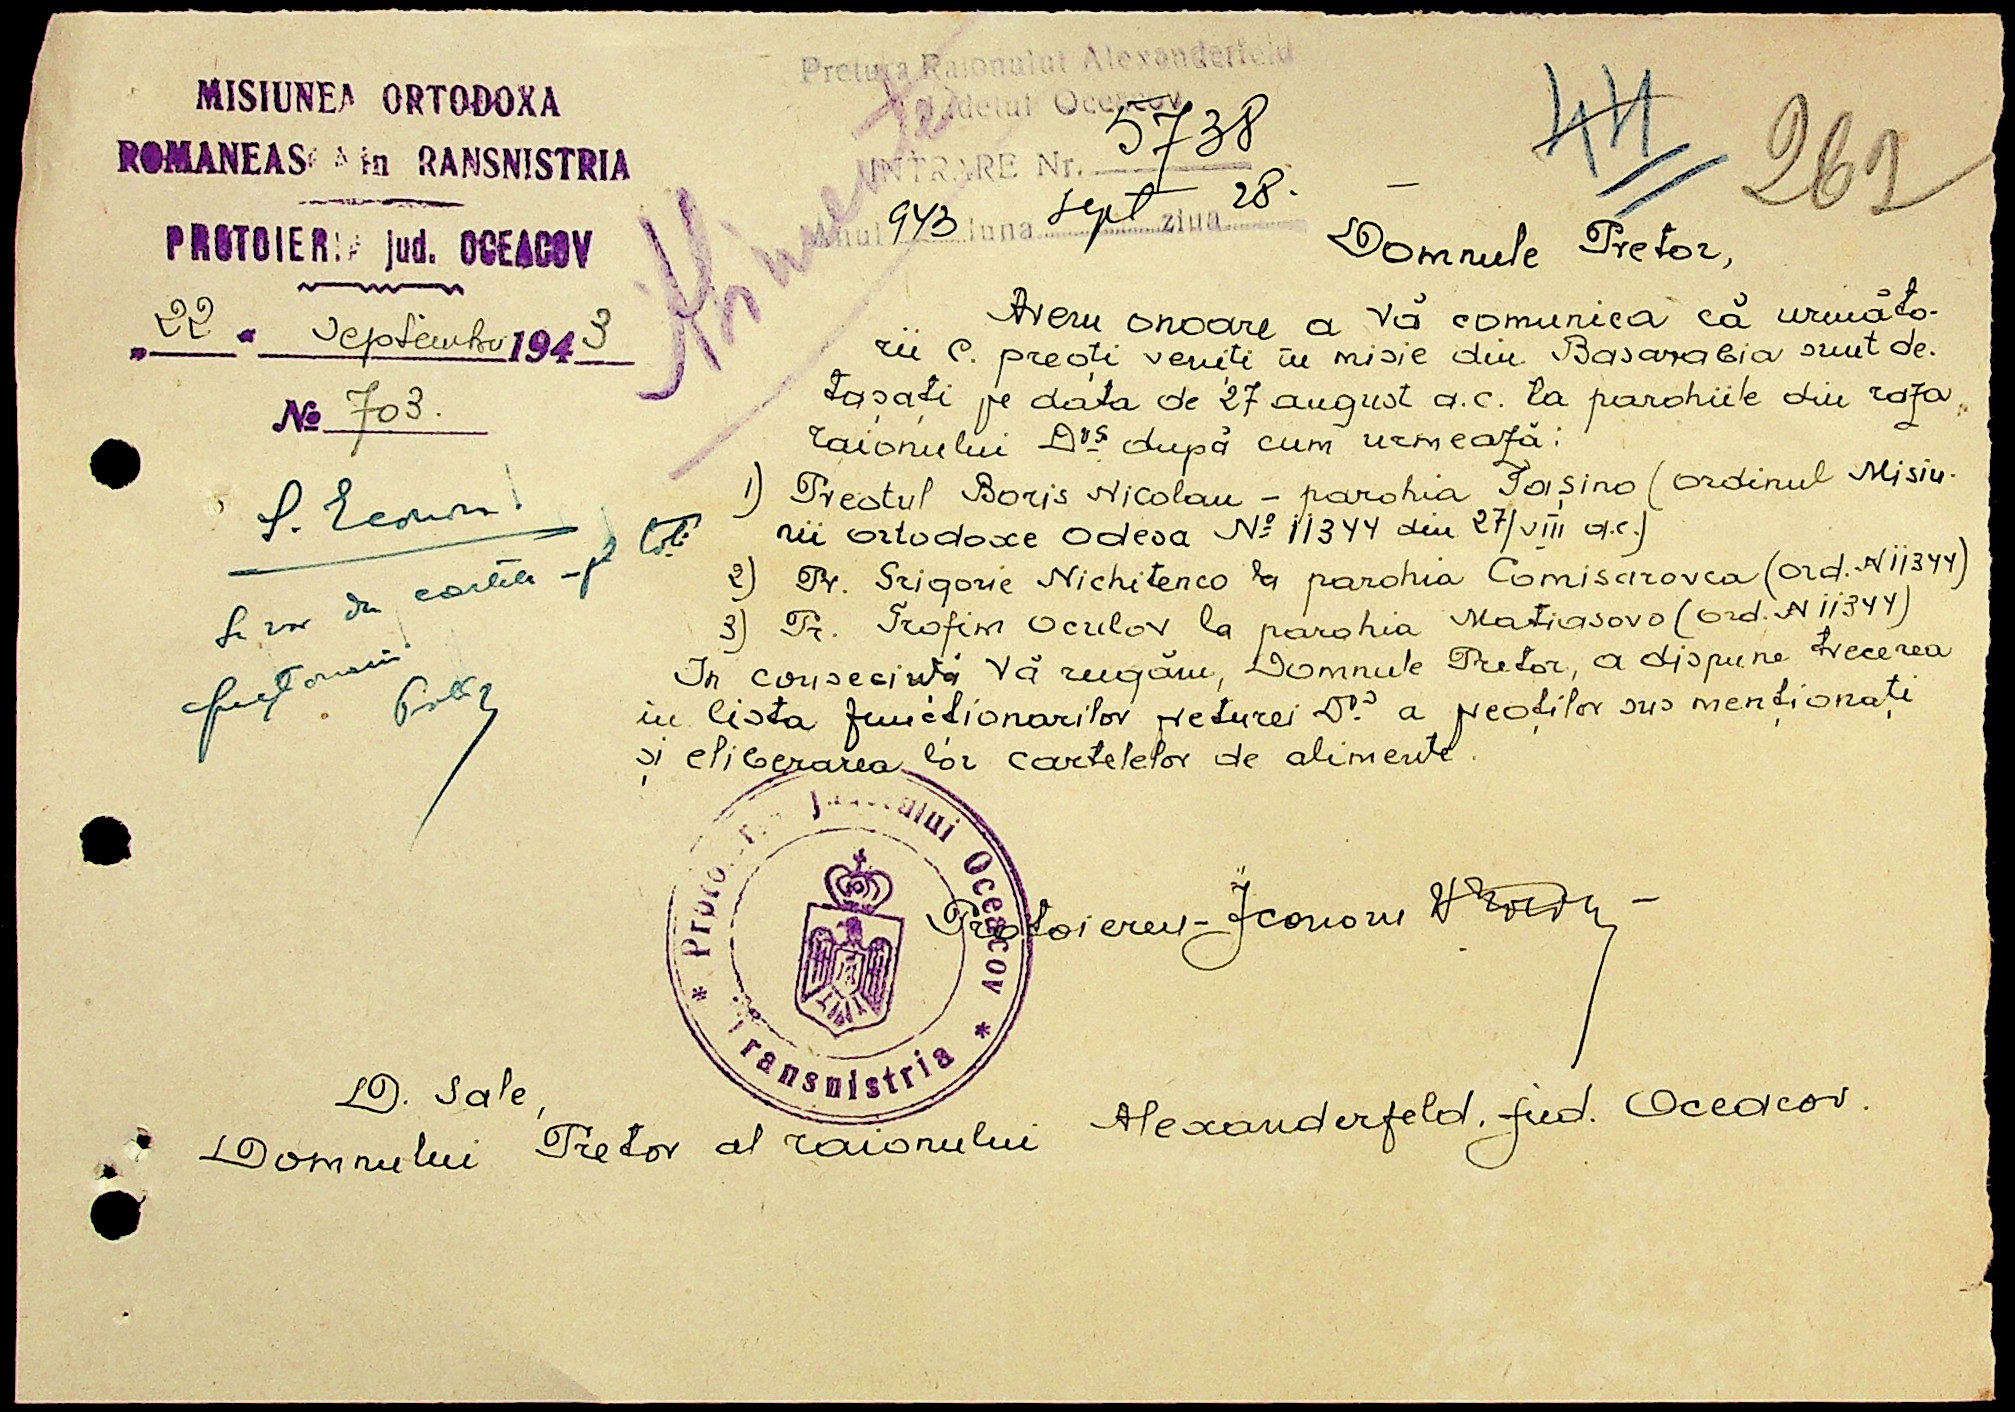 MISIUNEA ORTODOXA
ROMANEASCA in RANSNISTRIA
PROTOIERIA jud. OCEACOV
„22 " septembrie 1943
No 703.
Pretura Raionului Alexanderfeld
Judetul Oceacov
INTRARE Nr. 5738
Anul 943 luna sept ziua 28.
44
262
Alimente
S. Econom!
Se vor da cartele - pt toti
funcționarii
Domnule Pretor,
Avem onoare a Vă comunica că următo-
rii C. preoți veniți în misie din Basarabia sunt de-
tașați pe data de 27 august a.c. la parohiile din raza
raionului Dvs după cum urmează:
1) Preotul Boris Nicolau – parohia Iașino (ordinul Misiu-
nii ortodoxe Odesa No 11344 din 27/VIII a.c.)
2) Pr. Grigorie Nichitenco la parohia Comisarovca (ord. N 11344)
3) Pr. Trofim Oculov la parohia Matiasovo (ord. N 11344)
In consecință Vă rugăm, Domnule Pretor, a dispune trecerea
în lista funcționarilor preturei Dvs a preoților sus menționați
și eliberarea lor cartelelor de alimente.
Protoiereu-Iconom
* Protoieria Judetului Oceacov *
Transnistria
D. Sale,
Domnului Pretor al raionului Alexanderfeld, jud. Oceacov.